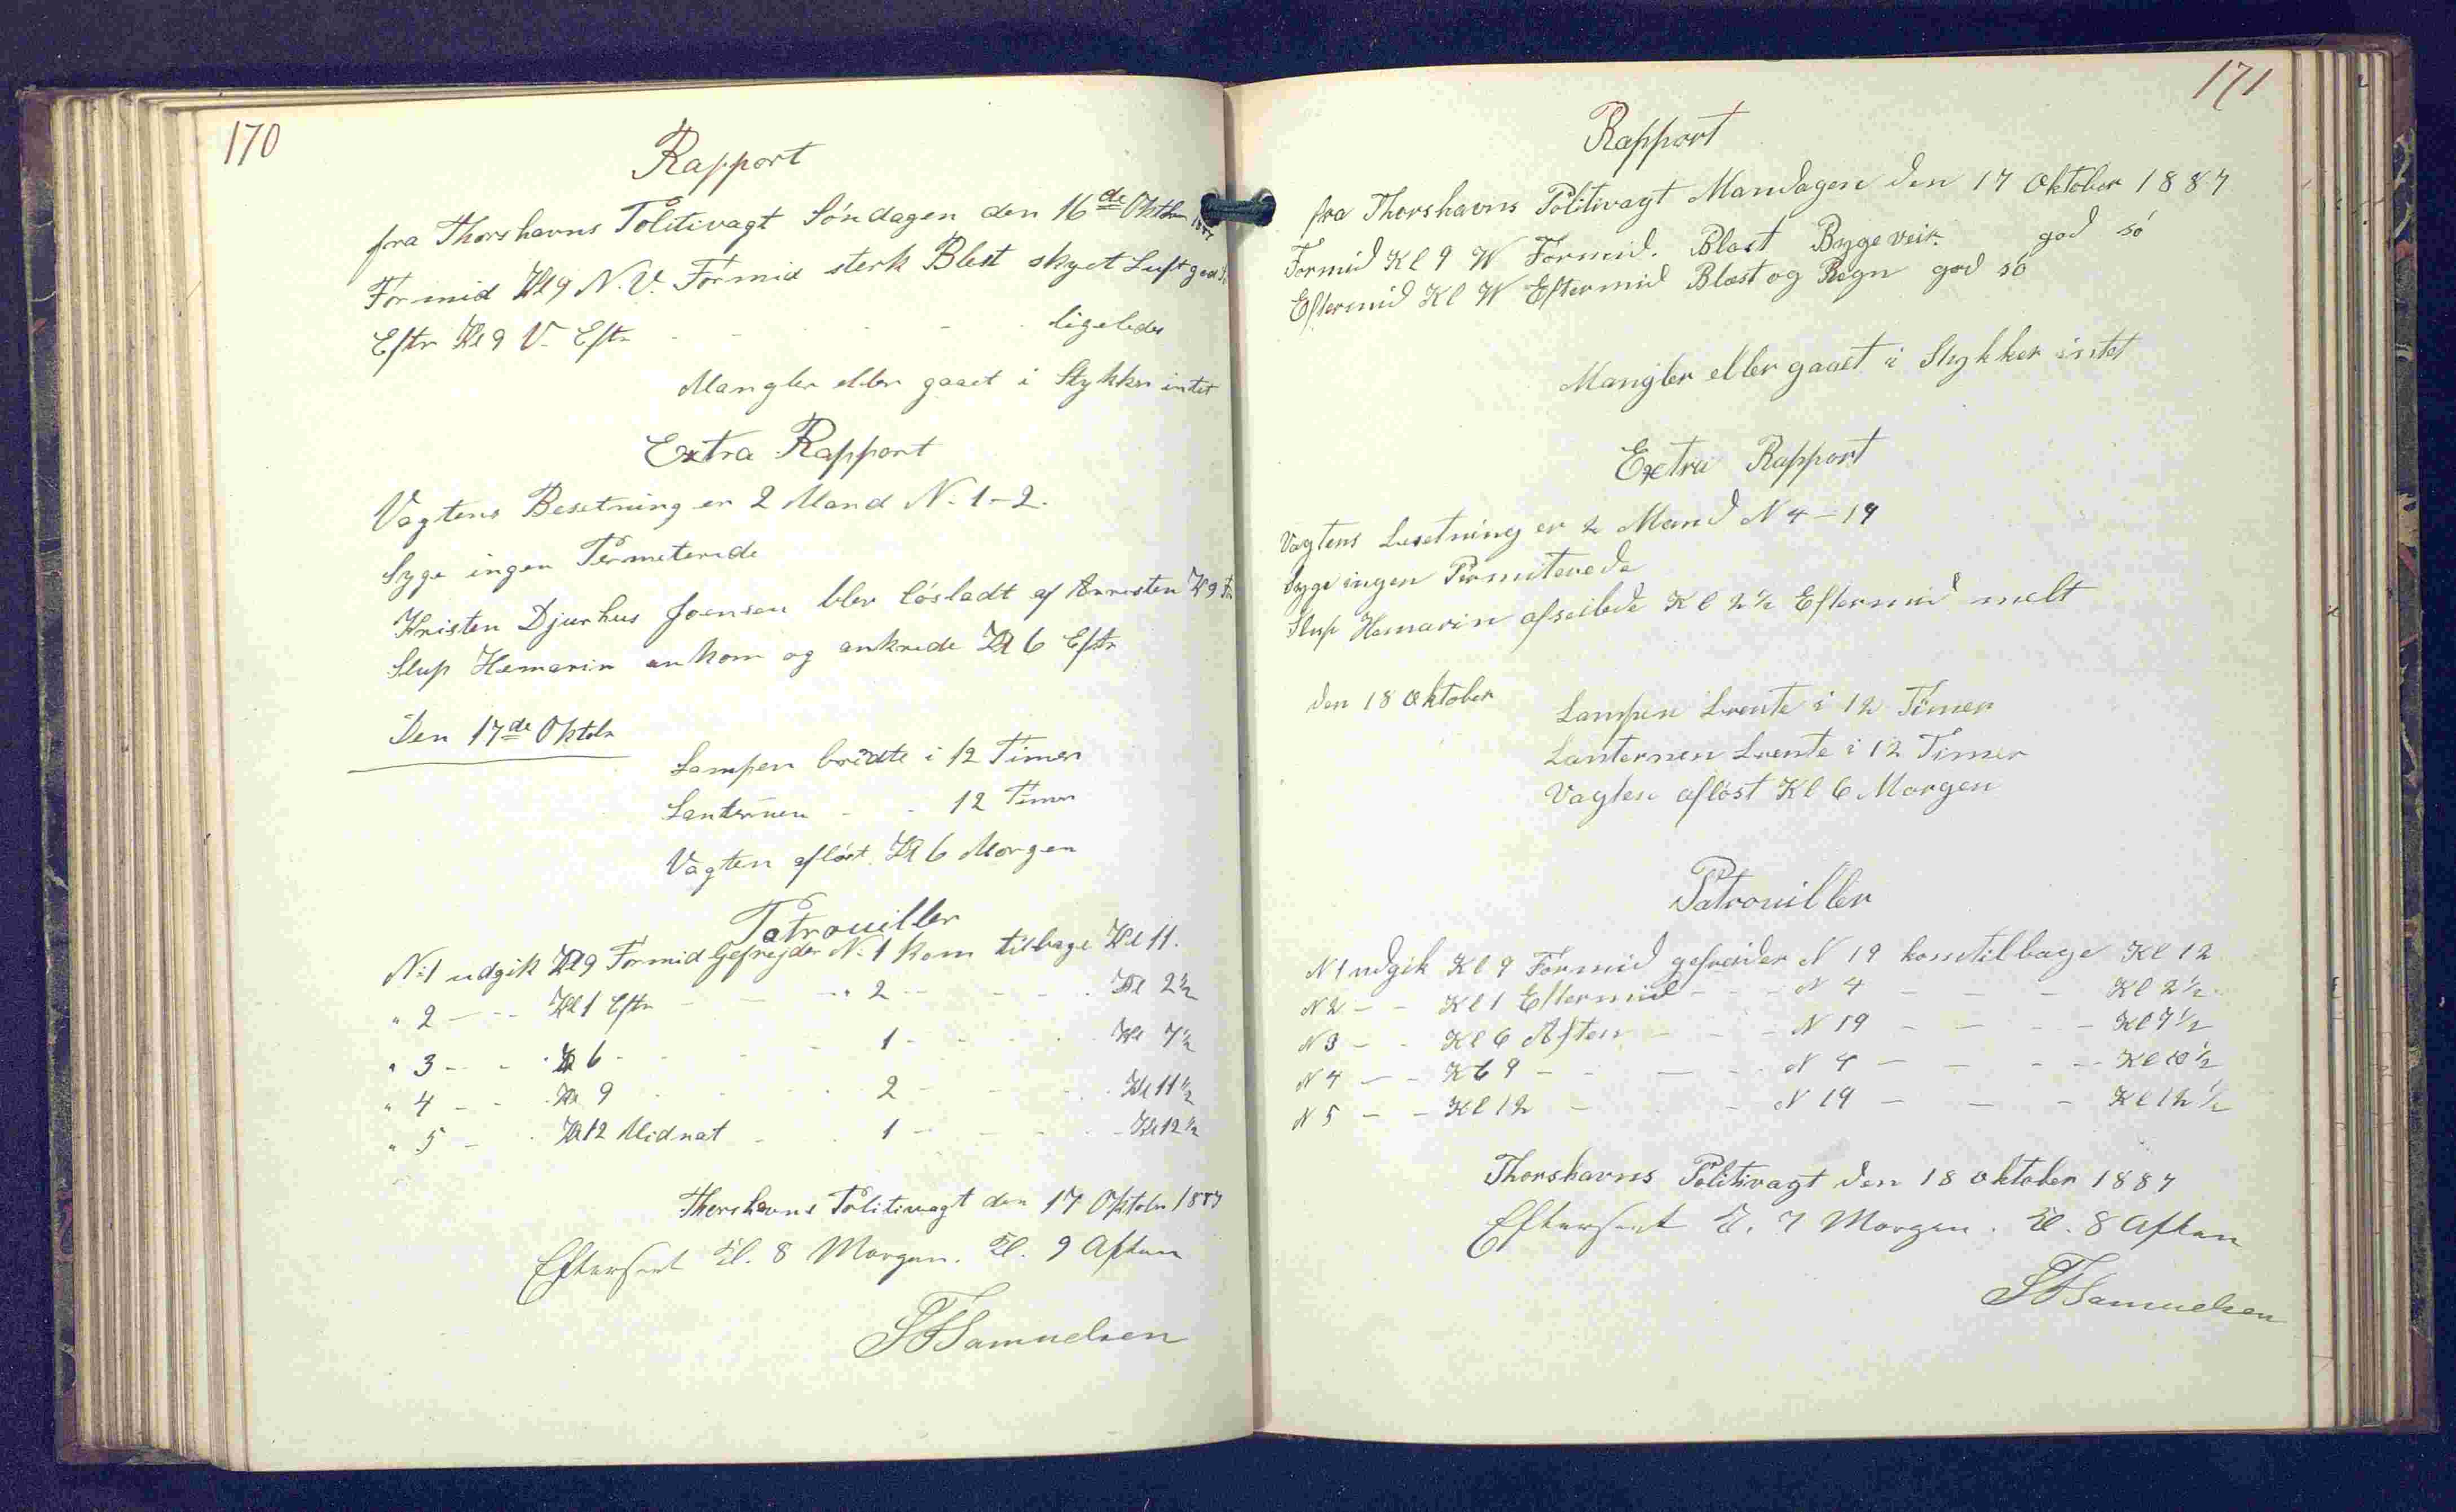 170
Rapport
fra Thorshavns Politivagt Söndagen den 16de Oktbr 1887
Formid Kl 9 N.V. Formid sterk Blest skyet Luft god
Eftr Kl 9 V. Eftr - - - - ligeledes
Mangler eller gaaet i Stykker intet
Extra Rapport
Vagtens Besetning er 2 Mand N: 1-2.
Syge ingen Permeterede
Kristen Djurhus Joensen blev lösladt af Arresten Kl 9
Slup Hæmarin ankom og ankrede Kl 6 Eftr
Den 17de Oktobr
Lampen brendte i 12 Timer
Lanternen - - 12 Timer
Vagten aflöst Kl 6 Morgen
Patrouiller
N:1 udgik Kl 9 Formid Gefrejder N: 1 kom tilbage Kl 11.
" 2 - - - Kl 1 Eftr - - - " 2 - - - - Kl 2½
" 3 - - - Kl 6 - - - - 1 - - - - Kl 7½
" 4 - - - Kl 9 - - - - 2 - - - - Kl 11½
" 5 - - Kl 12 Midnat - - 1 - - - - Kl 12½
Thorshavns Politivagt den 17 Oktobr 1887
Efterseet Kl. 8 Morgen. Kl. 9 Aften
SFSamuelsen
171
Rapport
fra Thorshavns Politivagt Mandagen den 17 Oktober 1887
Formid Kl 9 W Formid. Blast Bygeveir. god sö
Eftermid Kl W Eftermid Blæst og Regn god sö
Mangler eller gaaet i Stykker intet
Extra Rapport
Vagtens besetning er 2 Mand N 4 - 19
syge ingen Permiterede
Slup Hemarin afseilede Kl 2½ Eftermid melt
den 18 Oktober
Lampen brente i 12 Timer
Lanternen brente i 12 Timer
Vagten aflöst Kl 6 Morgen
Patrouiller
N 1 udgik Kl 9 Formid gefreider N 19 kom tilbage Kl 12
N 2 - - Kl 1 Eftermid - - - N 4 - - - Kl 2½
N 3 - - Kl 6 Aften - - - N 19 - - - Kl 7½
N 4 - - Kl 9 - - - - N 4 - - - - Kl 10½
N 5 - - Kl 12 - - - N 19 - - - Kl 12½
Thorshavns Politivagt den 18 oktober 1887
Efterseet Kl. 7 Morgen. Kl. 8 Aften
SFSamuelsen